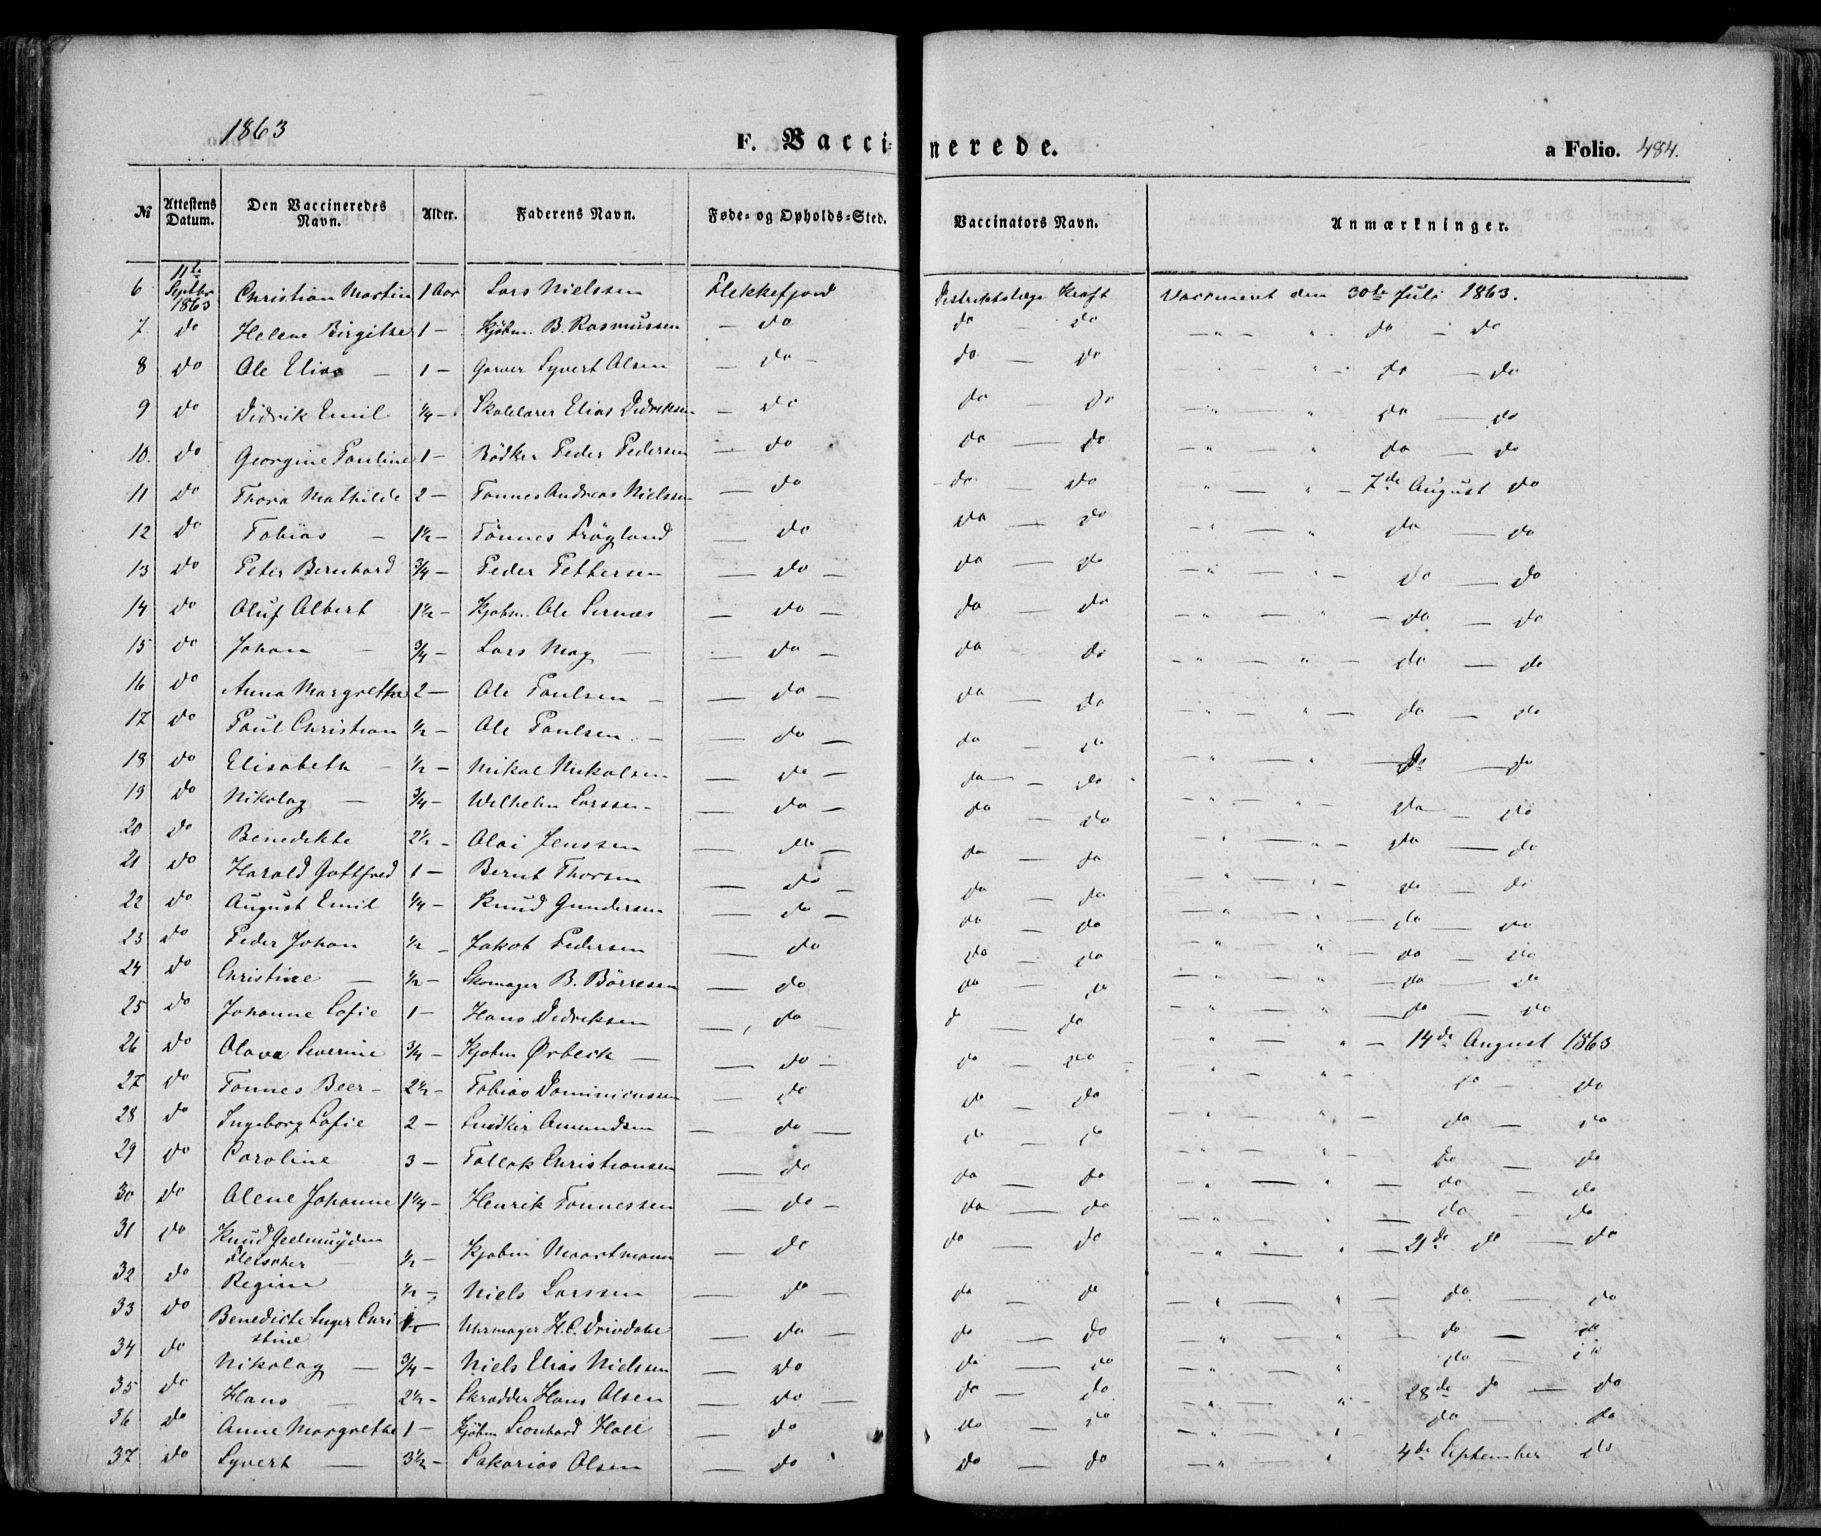 1863
F. Vaccinerede.
a Folio. 484.
№ Attestens Datum. Den Vaccineredes Navn. Alder. Faderens Navn. Føde- og Opholds-Sted. Vaccinators Navn. Anmærkninger.
6 11te Septbr 1863 Christian Martin 1 Aar Lars Nielssen Flekkefjord Distriktslæge Kraft Vaccineret den 30te Juli 1863.
7 do Helene Birgithe 1 — Kjøbm. B. Rasmussen — do do do — " — " do — do
8 do Ole Elias — 1 — Garver Syvert Olsen — do — do — do " do — do
9 do Didrik Emil 1/4 — Skolelærer Elias Didriksen — do do — do — " — " do — do
10. do Georgine Pauline 1 — Bödker Peder Pedersen — do do — do — " — " do — do
11 do Thora Mathilde 2 — Tönnes Andreas Nielssen — do do — do " — " — 7de August do
12 do Tobias — 1 1/2 — Tönnes Frøyland — do do — do — " — " do — do
13 do Peter Bernhard 3/4 — Peder Pettersen — do — do — do — " — " — do — do
14 do Oluf Albert 1 1/2 — Kjøbm. Ole Sirnæs — do — do — do — " — " — do — do
15 do Johan — 3/4 — Lars Mog — — do — do do — " — " — do — do
16 do Anna Margrethe 2 — Ole Paulsen — — do — do — do — " — " — do — do
17 do Paul Christian 1/2 — Ole Paulsen — — do — do — do — " — " — do — do
18 do Elisabeth — 1/2 — Mikal Mikalsen — do — do — do — " — " — do — do
19 do Nikolay — 3/4 — Wilhelm Larssen — do — do — do — " — " — do — do
20 do Benedikte 2 1/2 — Olai Jenssen — do — do — do — " — " — do — do
21 do Harald Gottfred 1 — Bernt Thorsen — do — do — do — " — " — do — do
22 do August Emil 1/4 — Knud Gundersen — do — do — do — " — " — do — do
23 do Peder Johan 1/2 — Jakob Pedersen — do do — do — " — " — do — do
24 do Christine — 1/2 — Skomager B. Börresen — do do — do — " — " — do — do
25 do Johanne Sofie 1 — Hans Didriksen — do — d — do — " — " — do — do
26 do Olava Severine 3/4 — Kjøbm Ørbeck — — do — do — do " — " — 14de August 1863
27 do Tönnes Beer — 2 1/2 — Tobias Dominicussen — do do — do — " — " — do — do
28 do Ingeborg Sofie 2 — Snidker Amundsen — do — do — do — " — " — do — do
29 do Caroline 3 — Tallak Christiansen — do do — do — " — " — do — do
30 do Olene Johanne 1 1/4 — Henrik Tönnessen — do — do — do — " — " — do — do
31 do Knud Geelmuyden
Fleischer — 1/2 — Kjøbm Maartmann — do do — do — " — " — 21de do — do
32 do Regine 1/2 — Niels Larssen — do — do — do — " — " — do — do
33 do Benedicte Inger Chri
stine 1 — Uhrmager H. C. Drivdahl — do — do — do — " — " do — do
34 do Nikolay — 3/4 — Niels Elias Nielssen — do do — do — " — " do — do
35 do Hans — 2 1/2 — Skrædder Hans Olsen — do — do — do — " — " 28de do — do
36 do Anne Margrethe 1 — Kjøbm Leonhard Hall — do do — do — " — " do — do
37 do Syvert — 3 1/2 — Sakarias Olsen — do do — do — " — " 4de September do